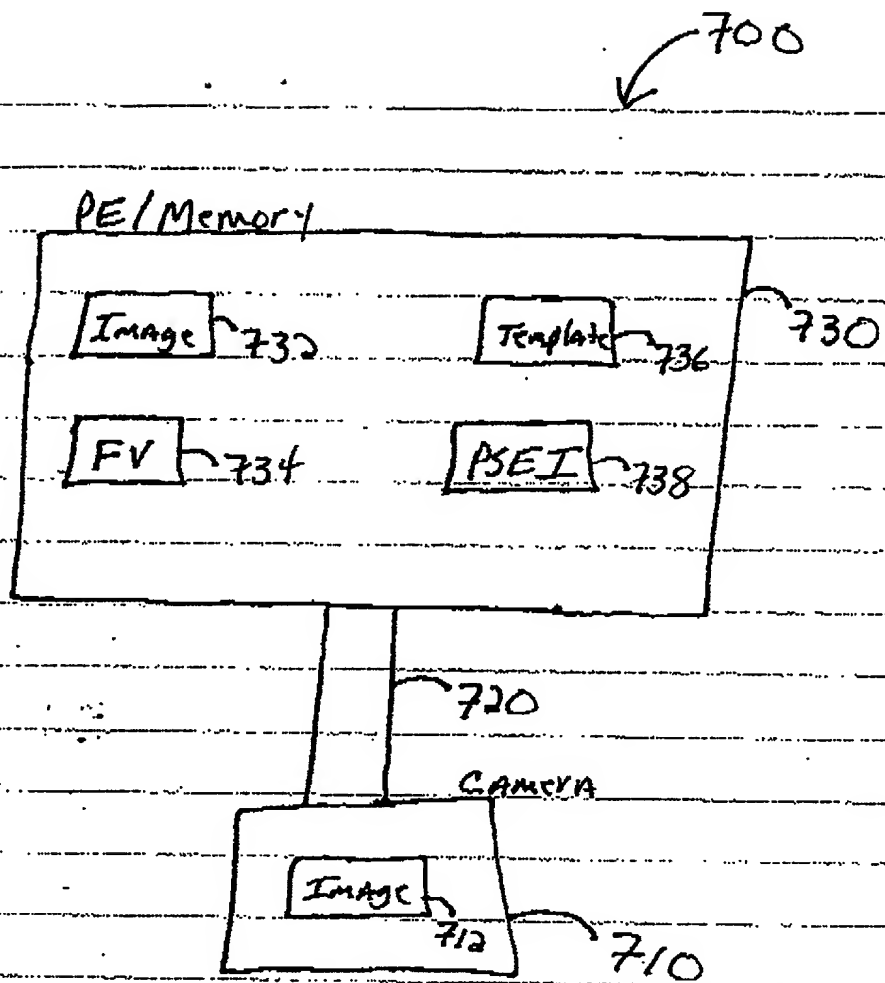 700
PE/Memory
730
Image 732
Template 736
FV 734
PSEI 738
720
Camera
Image 712
710